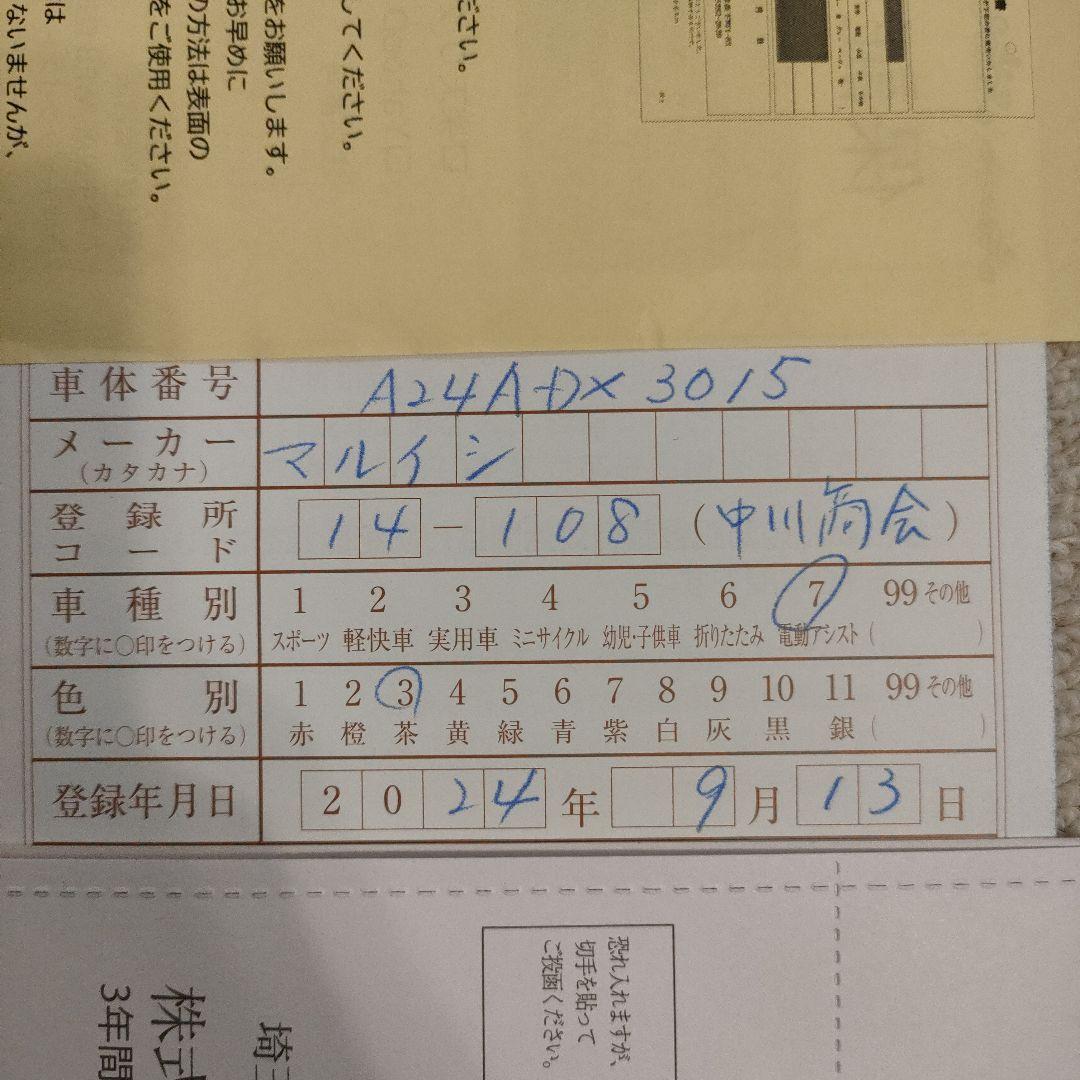 ださい。
してください。
をお願いします。
お早めに
の方法は表面の
をご使用ください。
は
ないませんが、
車体番号 A24A-DX 3015
メーカー マルイシ
(カタカナ)
登録所 14-108 (中川商会)
コード
車種別 1 2 3 4 5 6 7 99 その他
(数字に○印をつける) スポーツ 軽快車 実用車 ミニサイクル 幼児・子供車 折りたたみ 電動アシスト ( )
色別 1 2 3 4 5 6 7 8 9 10 11 99 その他
(数字に○印をつける) 赤 橙 茶 黄 緑 青 紫 白 灰 黒 銀 ( )
登録年月日 2024年 9月 13日
恐れ入れますが、
切手を貼って
ご投函ください。
埼
株式
3年間